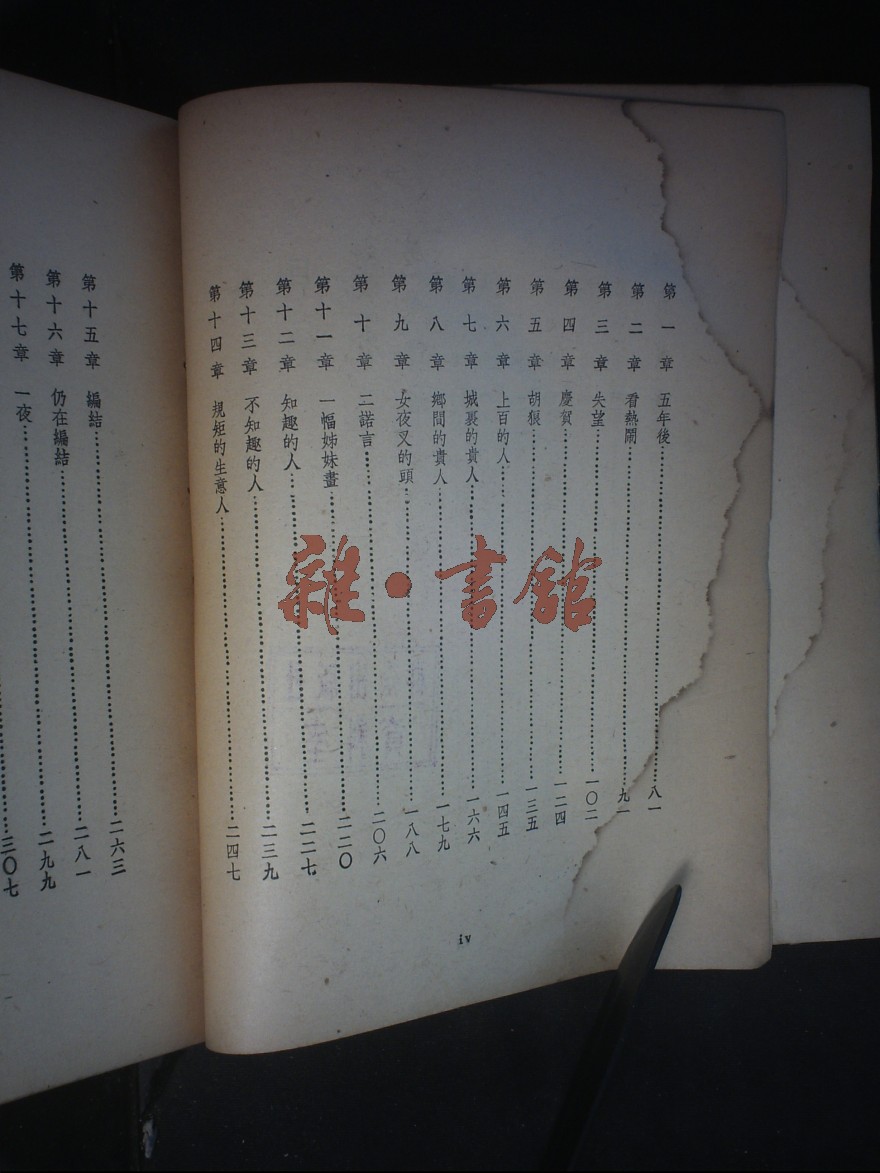 第一章 五年後……八一
第二章 看熱鬧……九一
第三章 失望……一〇二
第四章 慶賀……一二四
第五章 胡狼……一三五
第六章 上百的人……一四五
第七章 城裏的貴人……一六六
第八章 鄉間的貴人……一七九
第九章 女夜叉的頭……一八八
第十章 二諾言……二〇六
第十一章 一幅姊妹畫……二二〇
第十二章 知趣的人……二二七
第十三章 不知趣的人……二三九
第十四章 規矩的生意人……二四七
iv
第十五章 編結……二六三
第十六章 仍在編結……二八一
第十七章 一夜……二九九
三〇七
雜·書館